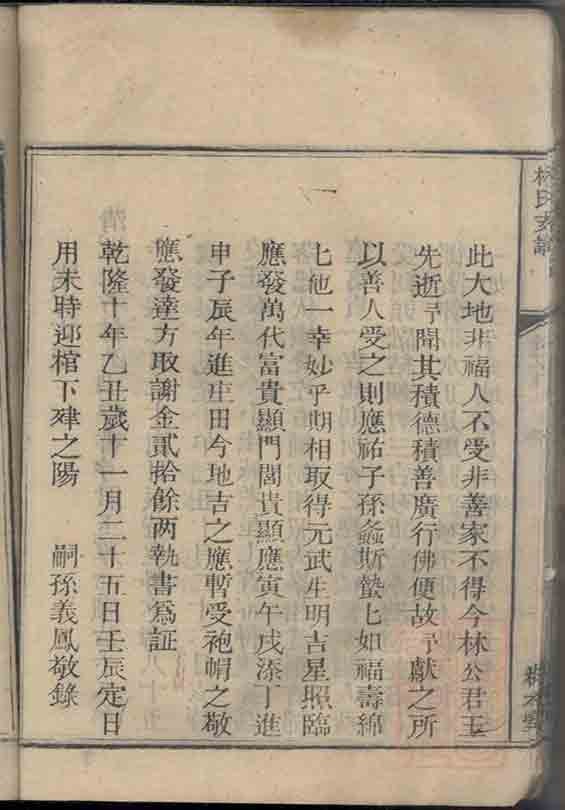 林氏支譜
此大地非福人不受非善家不得今林公君玉
先逝予聞其積德積善廣行佛便故予獻之所
以善人受之則應祐子孫螽斯蟄七如福壽綿
七他一幸妙乎期相取得元武生明吉星照臨
應發萬代富貴顯門閭貴顯應寅午戌添丁進
申子辰年進庄田今地吉之應暫受袍帽之敬
應發達方取謝金貳拾餘两執書爲証
乾隆十年乙丑歲十一月二十五日壬辰定日
用未時迎棺下肂之陽 嗣孫義鳳敬錄